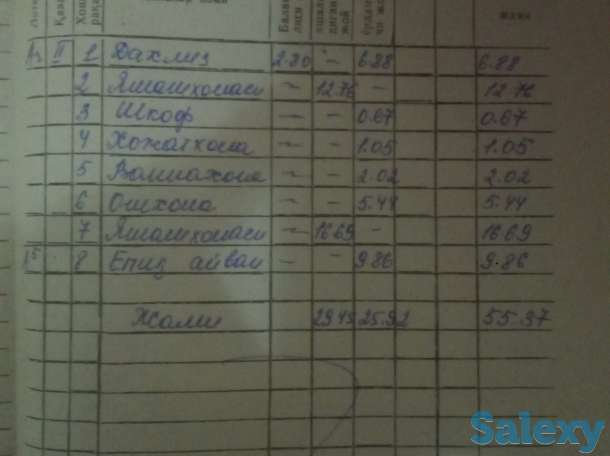 Қаз
Хон
рақа
Балан
лиги
яшала
диган
жой
ёрдам
чи жо
жами
А₁ II 1 Дахлиз 2.80 – 6.88 6.88
2 Яшашхонаси – 12.76 – 12.76
3 Шкоф – – 0.67 0.67
4 Хожатхона – – 1.05 1.05
5 Ваннахона – – 2.02 2.02
6 Ошхона – – 5.44 5.44
7 Яшашхонаси – 16.69 – 16.69
8 Епиқ айван – – 9.86 9.86
Жами 29.45 25.92 55.37
Salexy